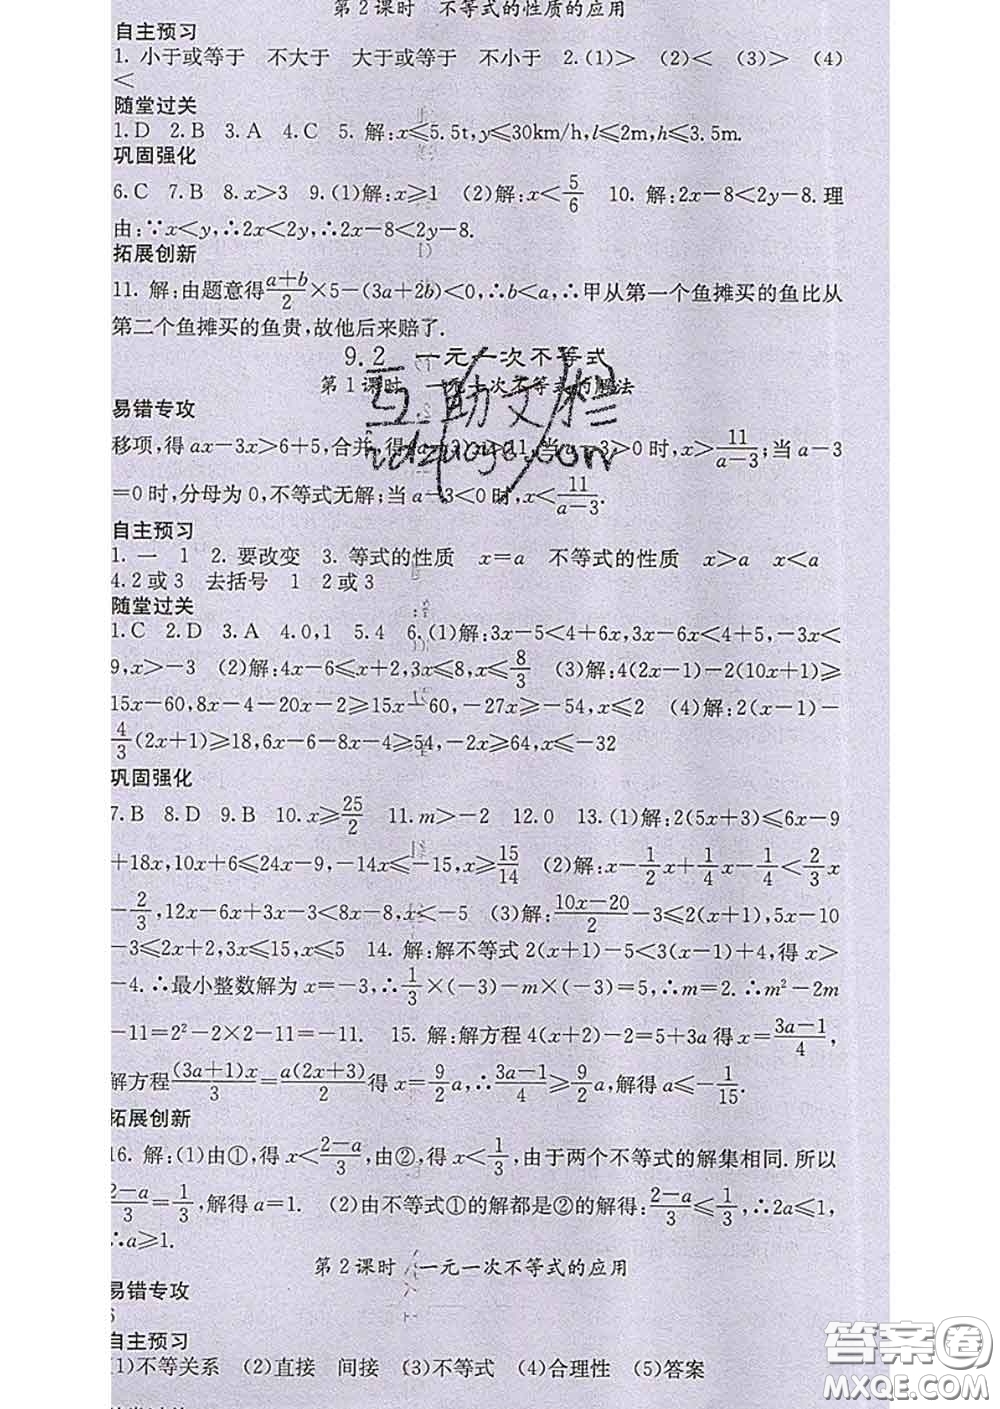 第2课时 不等式的性质的应用
自主预习
1. 小于或等于 不大于 大于或等于 不小于 2.(1)> (2)< (3)> (4)
<
随堂过关
1.D 2.B 3.A 4.C 5. 解:x⩽5.5t,y⩽30km/h,l⩽2m,h⩽3.5m.
巩固强化
6.C 7.B 8.x>3 9.(1)解:x⩾1 (2)解:x<5/6 10. 解:2x-8<2y-8.理
由:∵x<y,∴2x<2y,∴2x-8<2y-8.
拓展创新
11. 解:由题意得(a+b)/2×5-(3a+2b)<0,∴b<a,∴甲从第一个鱼摊买的鱼比从
第二个鱼摊买的鱼贵,故他后来赔了.
9.2 一元一次不等式
第1课时 一元一次不等式的解法
易错专攻
移项,得ax-3x>6+5,合并,得(a-3)x>11,当a-3>0时,x>11/(a-3);当a-3
=0时,分母为0,不等式无解;当a-3<0时,x<11/(a-3).
自主预习
1. 一 1 2. 要改变 3. 等式的性质 x=a 不等式的性质 x>a x<a
4.2或3 去括号 1 2或3
随堂过关
1.C 2.D 3.A 4.0,1 5.4 6.(1)解:3x-5<4+6x,3x-6x<4+5,-3x<
9,x>-3 (2)解:4x-6⩽x+2,3x⩽8,x⩽8/3 (3)解:4(2x-1)-2(10x+1)⩾
15x-60,8x-4-20x-2⩾15x-60,-27x⩾-54,x⩽2 (4)解:2(x-1)-
4/3(2x+1)⩾18,6x-6-8x-4⩾54,-2x⩾64,x⩽-32
巩固强化
7.B 8.D 9.B 10.x⩾25/2 11.m>-2 12.0 13.(1)解:2(5x+3)⩽6x-9
+18x,10x+6⩽24x-9,-14x⩽-15,x⩾15/14 (2)解:x-1/2x+1/4x-1/4<2/3x
-2/3,12x-6x+3x-3<8x-8,x<-5 (3)解:(10x-20)/2-3⩽2(x+1),5x-10
-3⩽2x+2,3x⩽15,x⩽5 14. 解:解不等式2(x+1)-5<3(x-1)+4,得x>
-4.∴最小整数解为x=-3,∴1/3×(-3)-m×(-3)=5,∴m=2.∴m²-2m
-11=2²-2×2-11=-11. 15. 解:解方程4(x+2)-2=5+3a得x=(3a-1)/4,
解方程(3a+1)x/3=a(2x+3)/2得x=9/2a,∴(3a-1)/4⩾9/2a,解得a⩽-1/15.
拓展创新
16. 解:(1)由①,得x<(2-a)/3,由②,得x<1/3,由于两个不等式的解集相同.所以
(2-a)/3=1/3,解得a=1. (2)由不等式①的解都是②的解得:(2-a)/3⩽1/3,∴2a⩽1,
∴a⩾1.
第2课时 一元一次不等式的应用
易错专攻
6
自主预习
(1)不等关系 (2)直接 间接 (3)不等式 (4)合理性 (5)答案
互助文档
答案圈
MXQE.COM